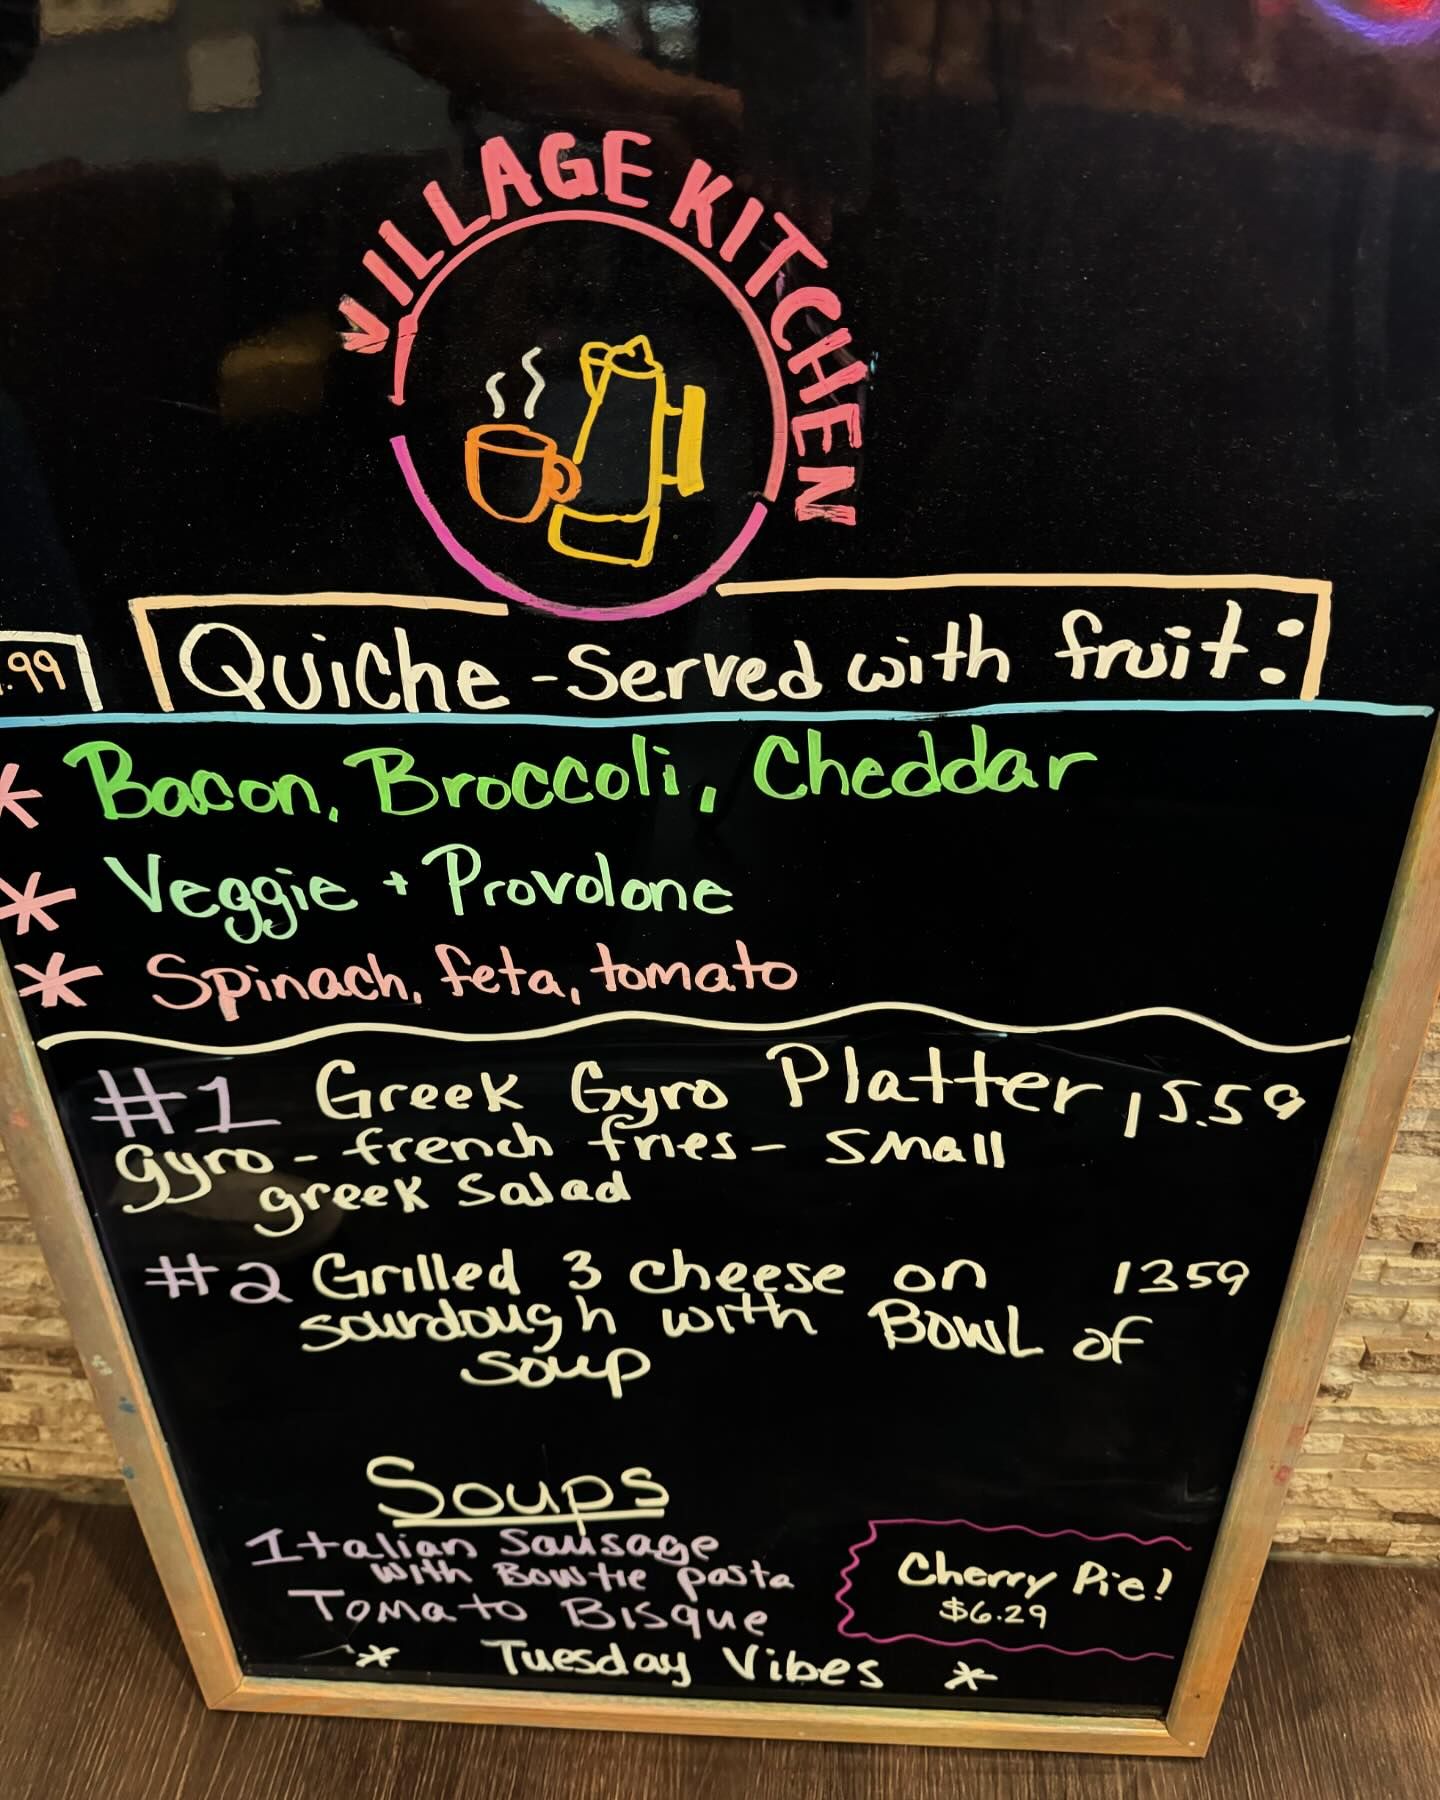 VILLAGE KITCHEN
.99
Quiche - Served with fruit:
* Bacon, Broccoli, Cheddar
* Veggie + Provolone
* Spinach, feta, tomato
#1 Greek Gyro Platter 15.59
Gyro - french fries - small
greek salad
#2 Grilled 3 cheese on 1359
sourdough with BOWL of
soup
Soups
Italian Sausage
with Bowtie pasta
Tomato Bisque
Cherry Pie!
$6.29
* Tuesday Vibes *